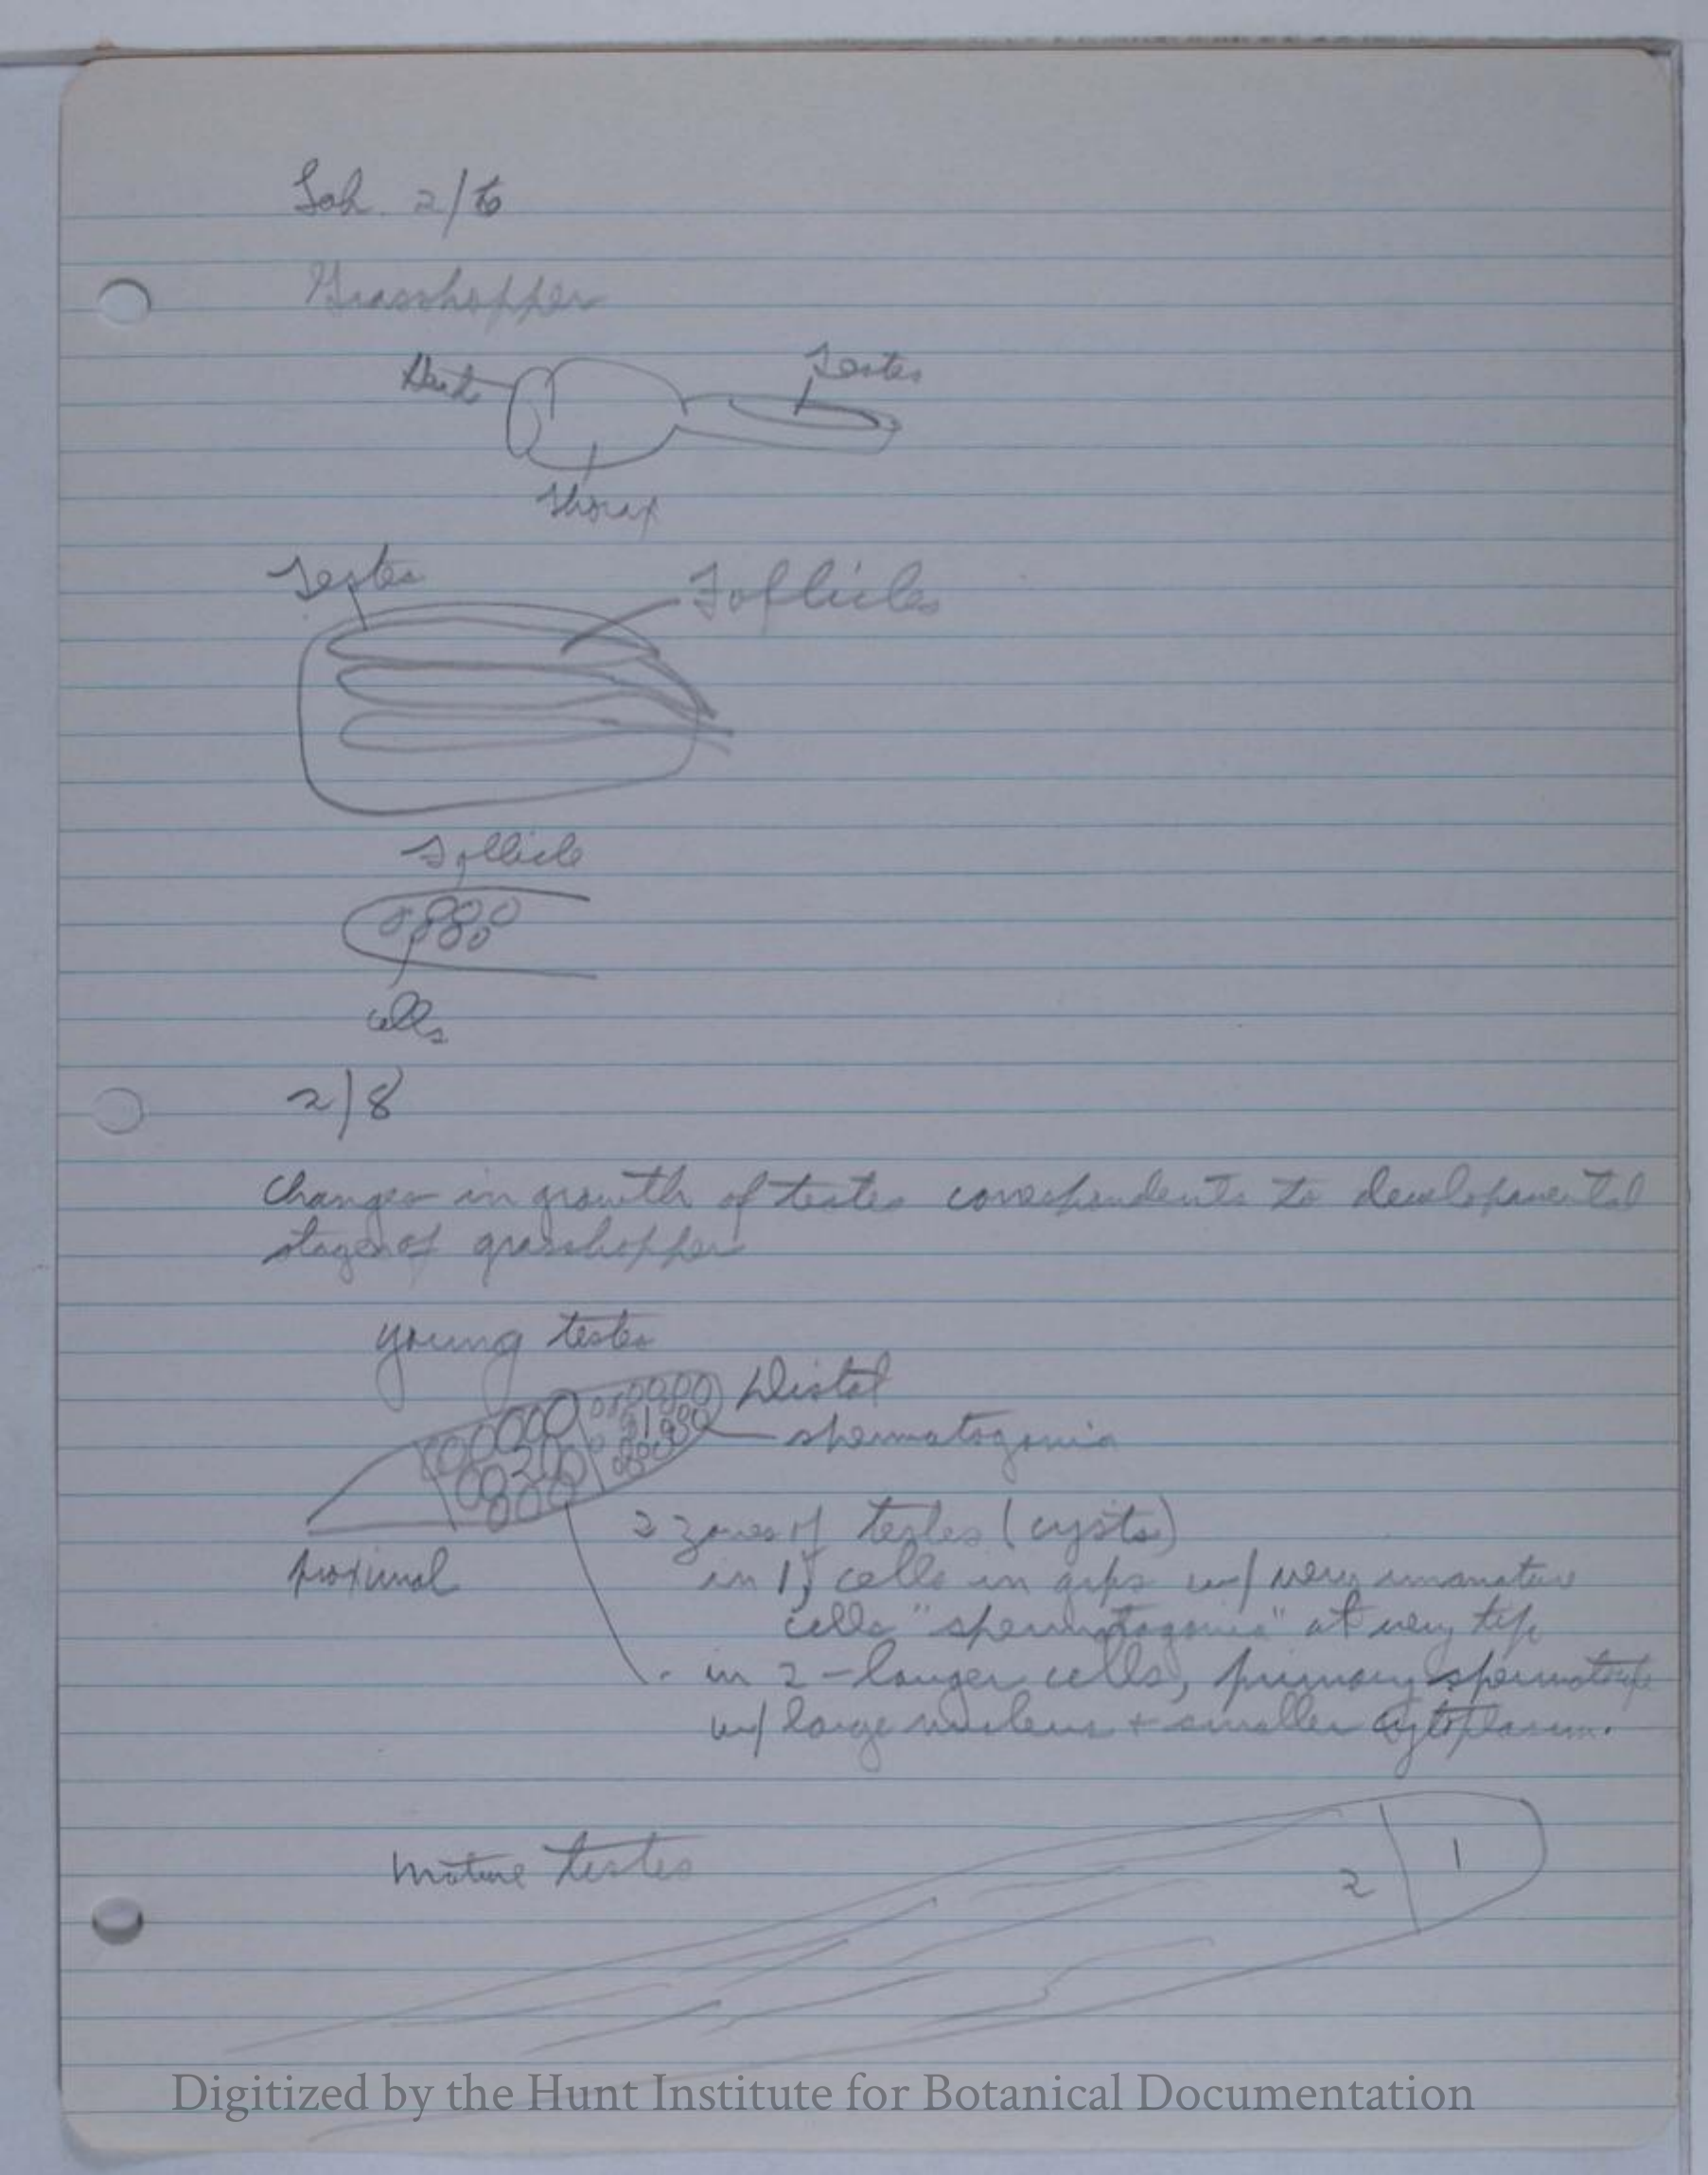 Lab. 2/6
Grasshopper
Head
Testes
Thorax
Testes
Follicles
Follicle
cells
2/8
Changes in growth of testes correspondents to developmental
stages of grasshopper
young testes
Distal
spermatogonia
1
2
proximal
2 zones of testes (cysts)
in 1, cells in gps w/ very immature
cells "spermatogonia" at very tip
in 2 - larger cells, primary
w/ large nucleus + smaller cytoplasm.
mature testes
2
1
Digitized by the Hunt Institute for Botanical Documentation